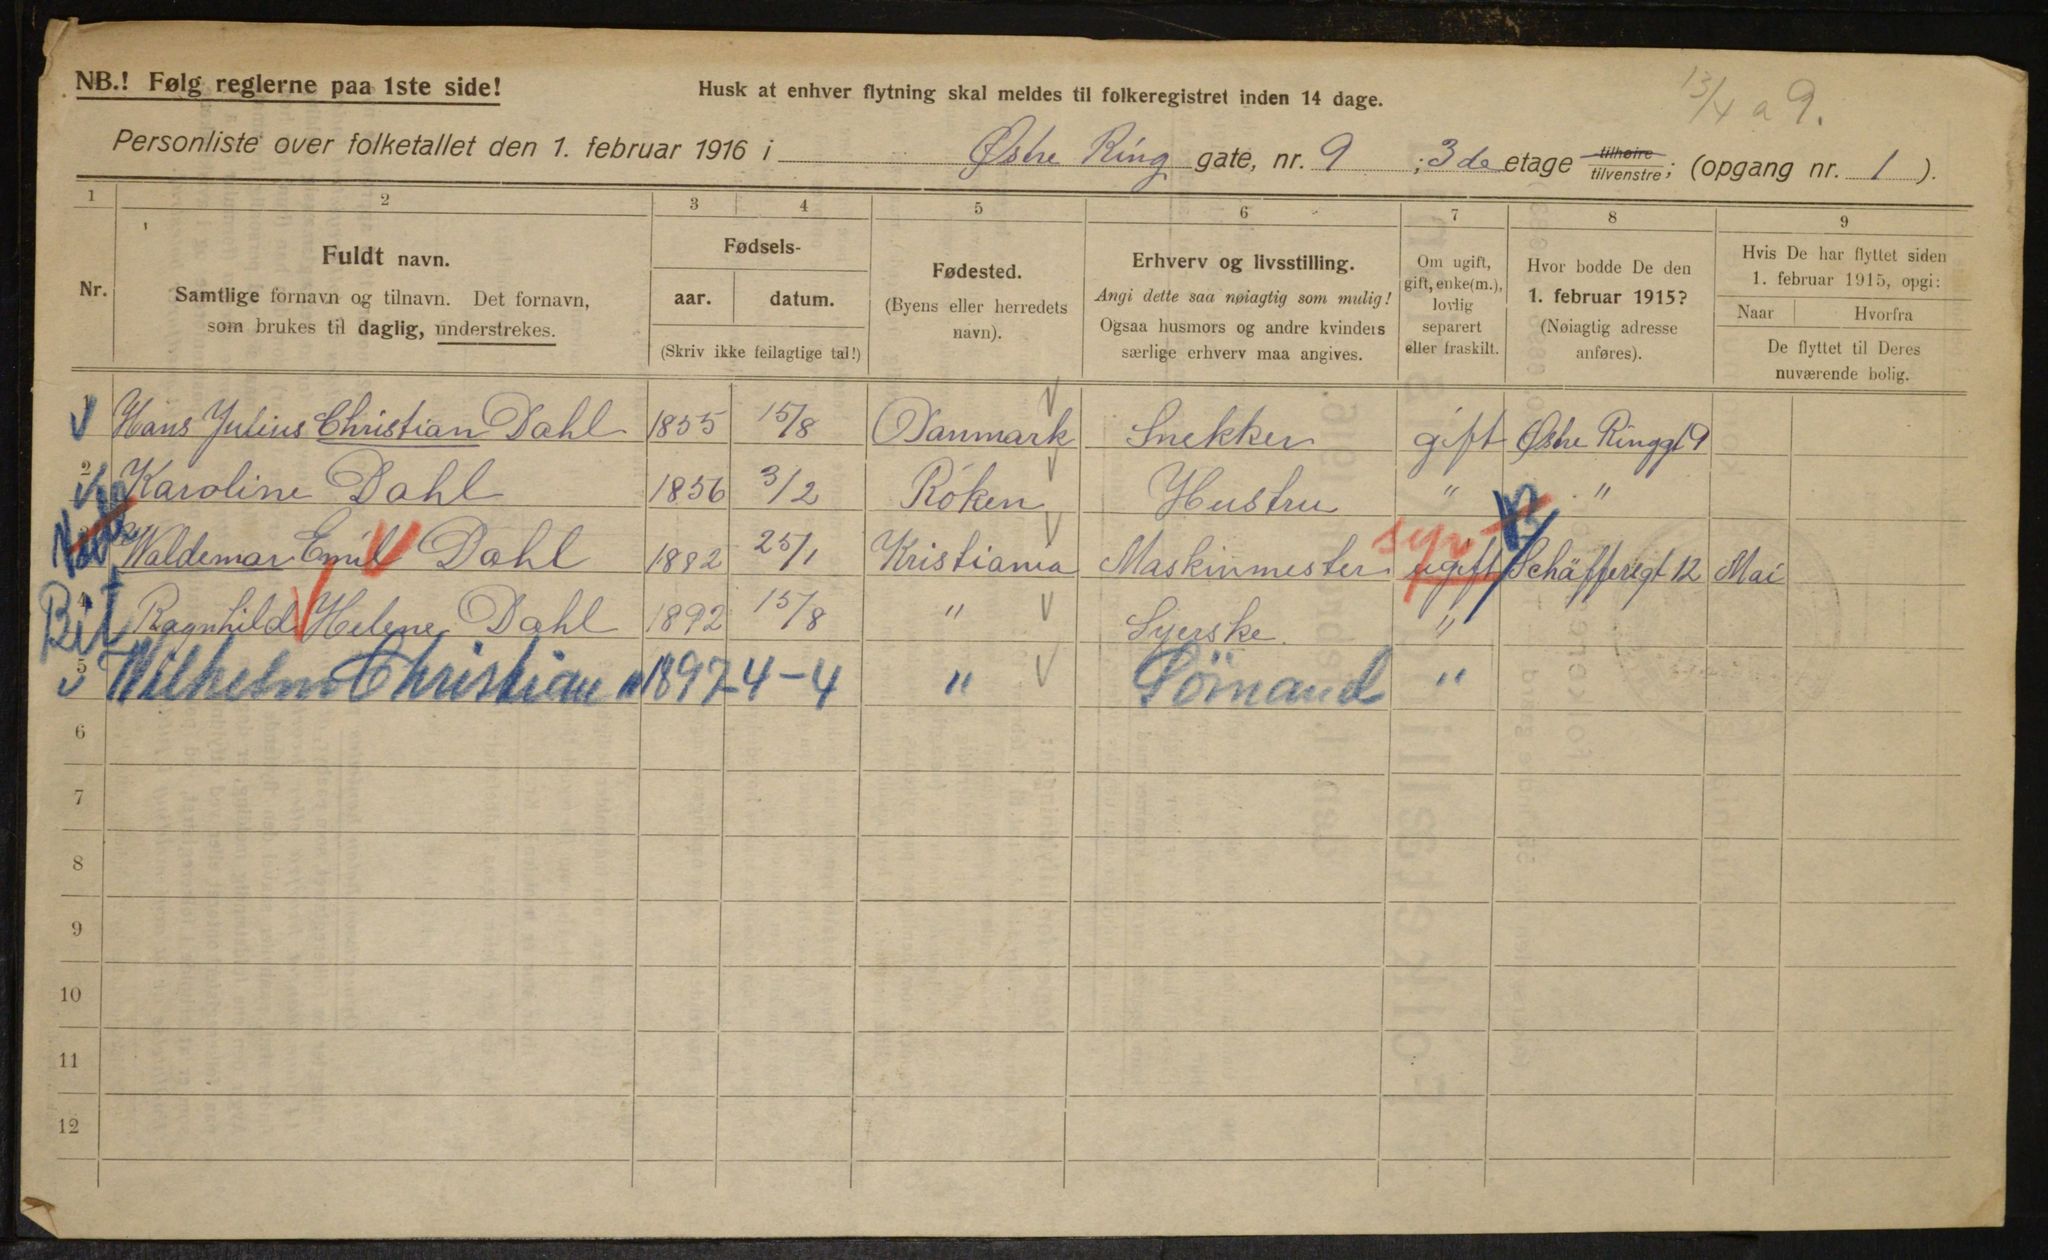 NB.! Følg reglerne paa 1ste side!
Husk at enhver flytning skal meldes til folkeregistret inden 14 dage.
13/4 a 9.
Personliste over folketallet den 1. februar 1916 i Østre Ring gate, nr. 9 ; 3de etage tilhøire tilvenstre; (opgang nr. 1 ).
1 2 3 4 5 6 7 8 9
Nr.
Fuldt navn.
Samtlige fornavn og tilnavn. Det fornavn,
som brukes til daglig, understrekes.
Fødsels-
aar. datum.
(Skriv ikke feilagtige tal!)
Fødested.
(Byens eller herredets
navn).
Erhverv og livsstilling.
Angi dette saa nøiagtig som mulig!
Ogsaa husmors og andre kvinders
særlige erhverv maa angives.
Om ugift,
gift, enke(m.),
lovlig
separert
eller fraskilt.
Hvor bodde De den
1. februar 1915?
(Nøiagtig adresse
anføres).
Hvis De har flyttet siden
1. februar 1915, opgi:
Naar Hvorfra
De flyttet til Deres
nuværende bolig.
Hans Julius Christian Dahl 1855 15/8 Danmark Snekker gift Østre Ringgt 9
2 Karoline Dahl 1856 3/2 Röken Hustru " "
3 Waldemar Emil Dahl 1882 25/1 Kristiania Maskinmester ugift Schäfferegt 12 Mai
4 Ragnhild Helene Dahl 1892 15/8 " Syerske "
5 Wilhelm Christian " 1897 4-4 " Sömand "
6
7
8
9
10
11
12